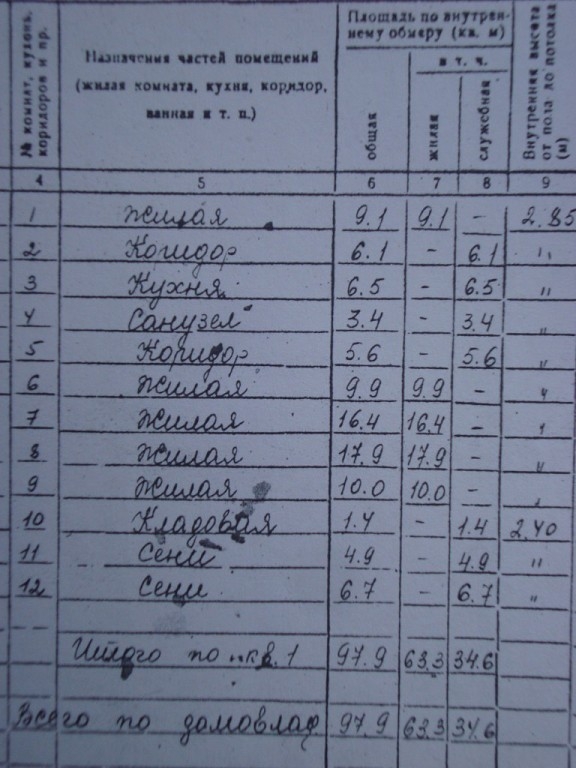 № комнат, кухонь, коридоров и пр.
Назначения частей помещений
(жилая комната, кухня, коридор,
ванная и т. п.)
Площадь по внутрен-
нему обмеру (кв. м)
в т. ч.
общая
жилая
служебная
Внутренняя высота от пола до потолка (м)
4 5 6 7 8 9
1 Жилая 9.1 9.1 - 2.85
2 Коридор 6.1 - 6.1 "
3 Кухня 6.5 - 6.5 "
4 Санузел 3.4 - 3.4 "
5 Коридор 5.6 - 5.6 "
6 Жилая 9.9 9.9 - "
7 Жилая 16.4 16.4 - "
8 Жилая 17.9 17.9 - "
9 Жилая 10.0 10.0 - "
10 Кладовая 1.4 - 1.4 2.40
11 Сени 4.9 - 4.9 "
12 Сени 6.7 - 6.7 "
Итого по кв. 1 97.9 63.3 34.6
Всего по домовлад 97.9 63.3 34.6